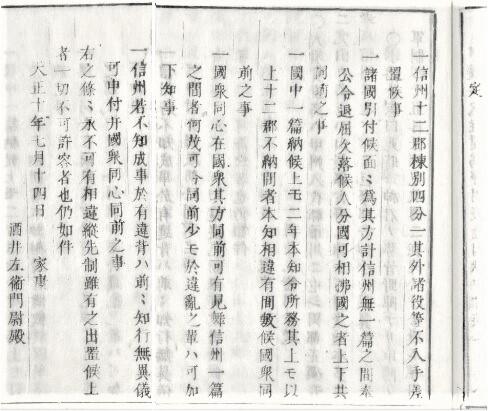 定
一信州十二郡棟別四分一其外諸役等不入手差
置候事
一諸國引付候面〻爲其方計信州無一篇之間奉
公令退屈欠落候人分國可相拂國之者上下共
同前之事
一國中一篇納候上モ二年本知令所務其上モ以
上十二郡不納間者本知相違有間敷候國衆同
前之事
一國衆同心在國衆其方同前可有見舞信州一篇
之間者何放可令同前少モ於違亂之輩ハ可加
下知事
一信州若不知成事於有違背ハ前〻知行無異儀
可申付并國衆同心同前之事
右之條〻永不可有相違縱先制雖有之出置候上
者一切不可許容者也仍如件
天正十年七月十四日 家康
酒井左衞門尉殿